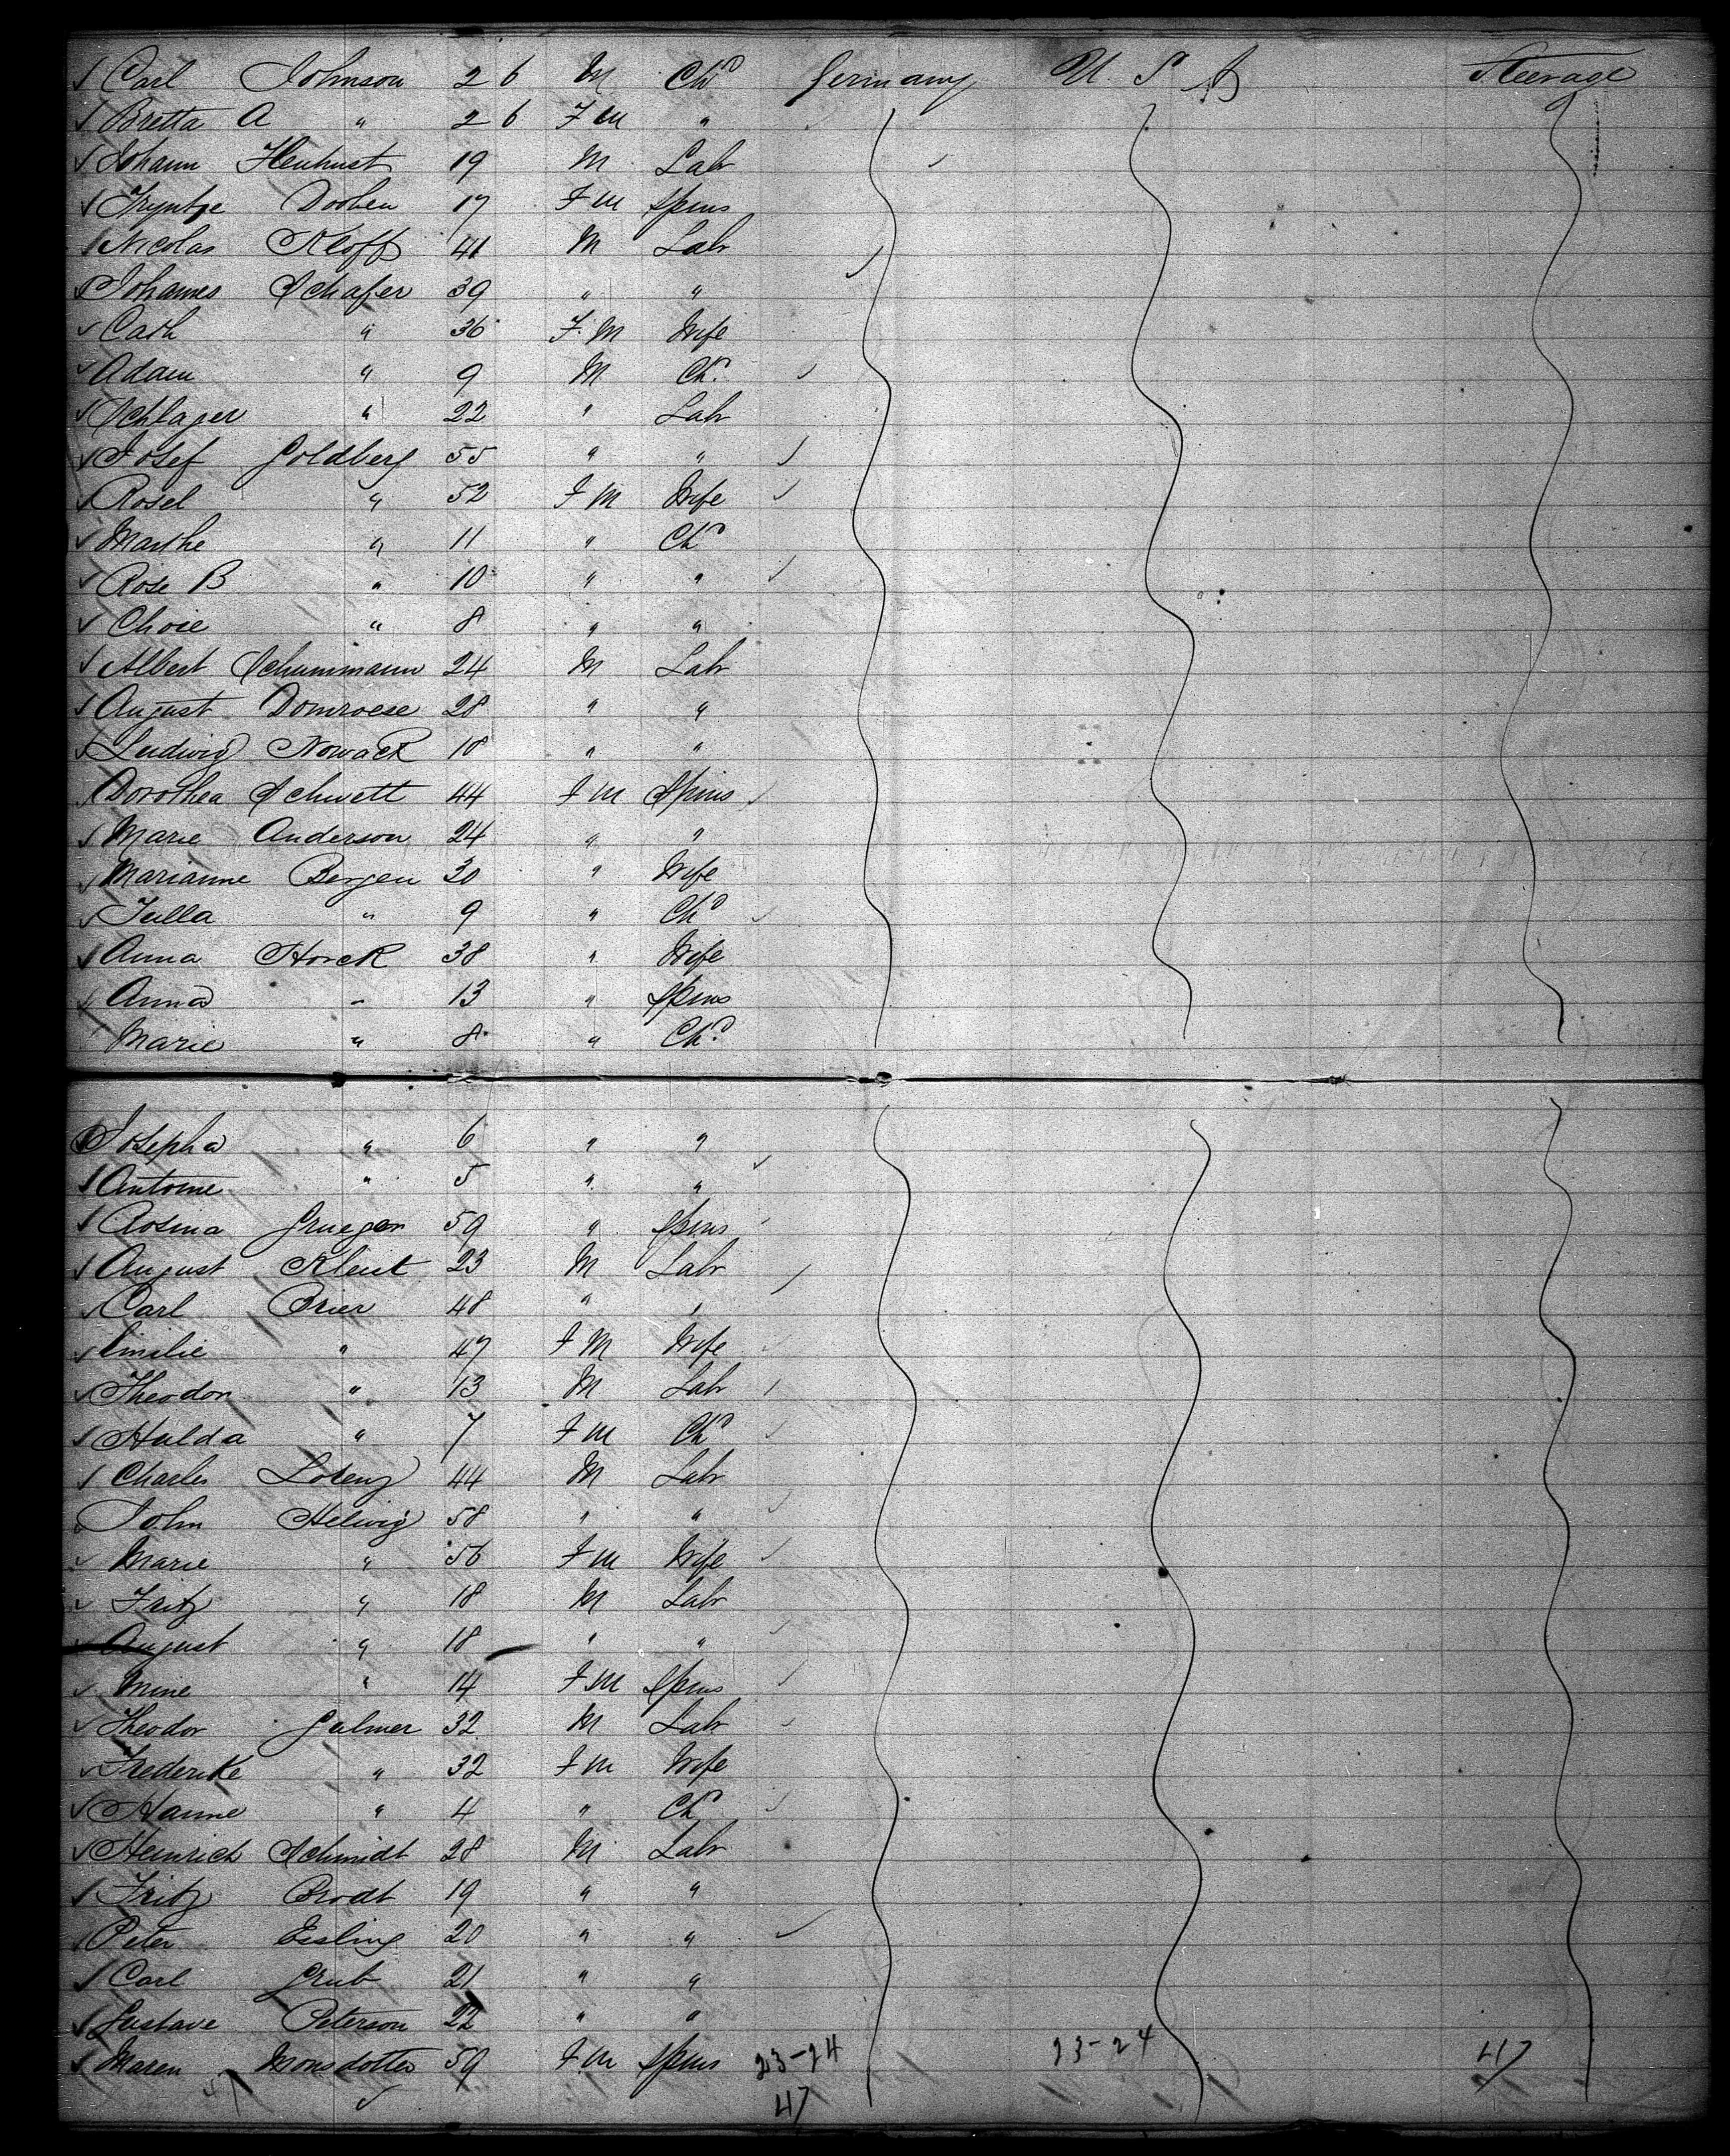 Carl Johnson 2 6 M Chd Germany U. S A Steerage
Bretta A " 2 6 F m "
Johann 19 M Labr
Tryntje Dooben 17 F m Spins
Nicolas Kloff 41 M Labr
Johannes Schafer 39 " "
Cath " 36 F. M Wife
Adam " 9 M Chd
Schlager " 22 " Labr
Josef Goldberg 55 " "
Rosel " 52 F M Wife
Marthe " 11 " Chd
Rose B " 10 " "
Choie " 8 " "
Albert Schummann 24 M Labr
August Domroese 28 " "
Ludwig Nowack 18 " "
Dorothea Schwett 44 F m Spins
Marie Anderson 24 " "
Marianne Bergen 30 " Wife
Julla " 9 " Chd
Anna Horck 38 " Wife
Anna " 13 " Spins
Marie " 8 " Chd
Josepha " 6 " "
Antonie " 5 " "
Rosina Grueger 59 " Spins
August Kleist 23 M Labr
Carl Brier 48 " "
Emilie " 47 F M Wife
Theodor " 13 M Labr
Hulda " 7 F m Chd
Charles Lorenz 44 M Labr
John Helwig 58 " "
Marie " 56 F m Wife
Fritz " 18 M Labr
August " 18 " "
Mine " 14 F m Spins
Theodor Galmer 32 M Labr
Frederike " 32 F m Wife
Hanne " 4 " Chd
Heinrich Schmidt 28 M Labr
Fritz Brodt 19 " "
Peter Eisling 20 " "
Carl Grub 21 " "
Gustave Peterson 22 " "
Maren Monsdotter 59 F m Spins 23-24 23-24 47
47 47